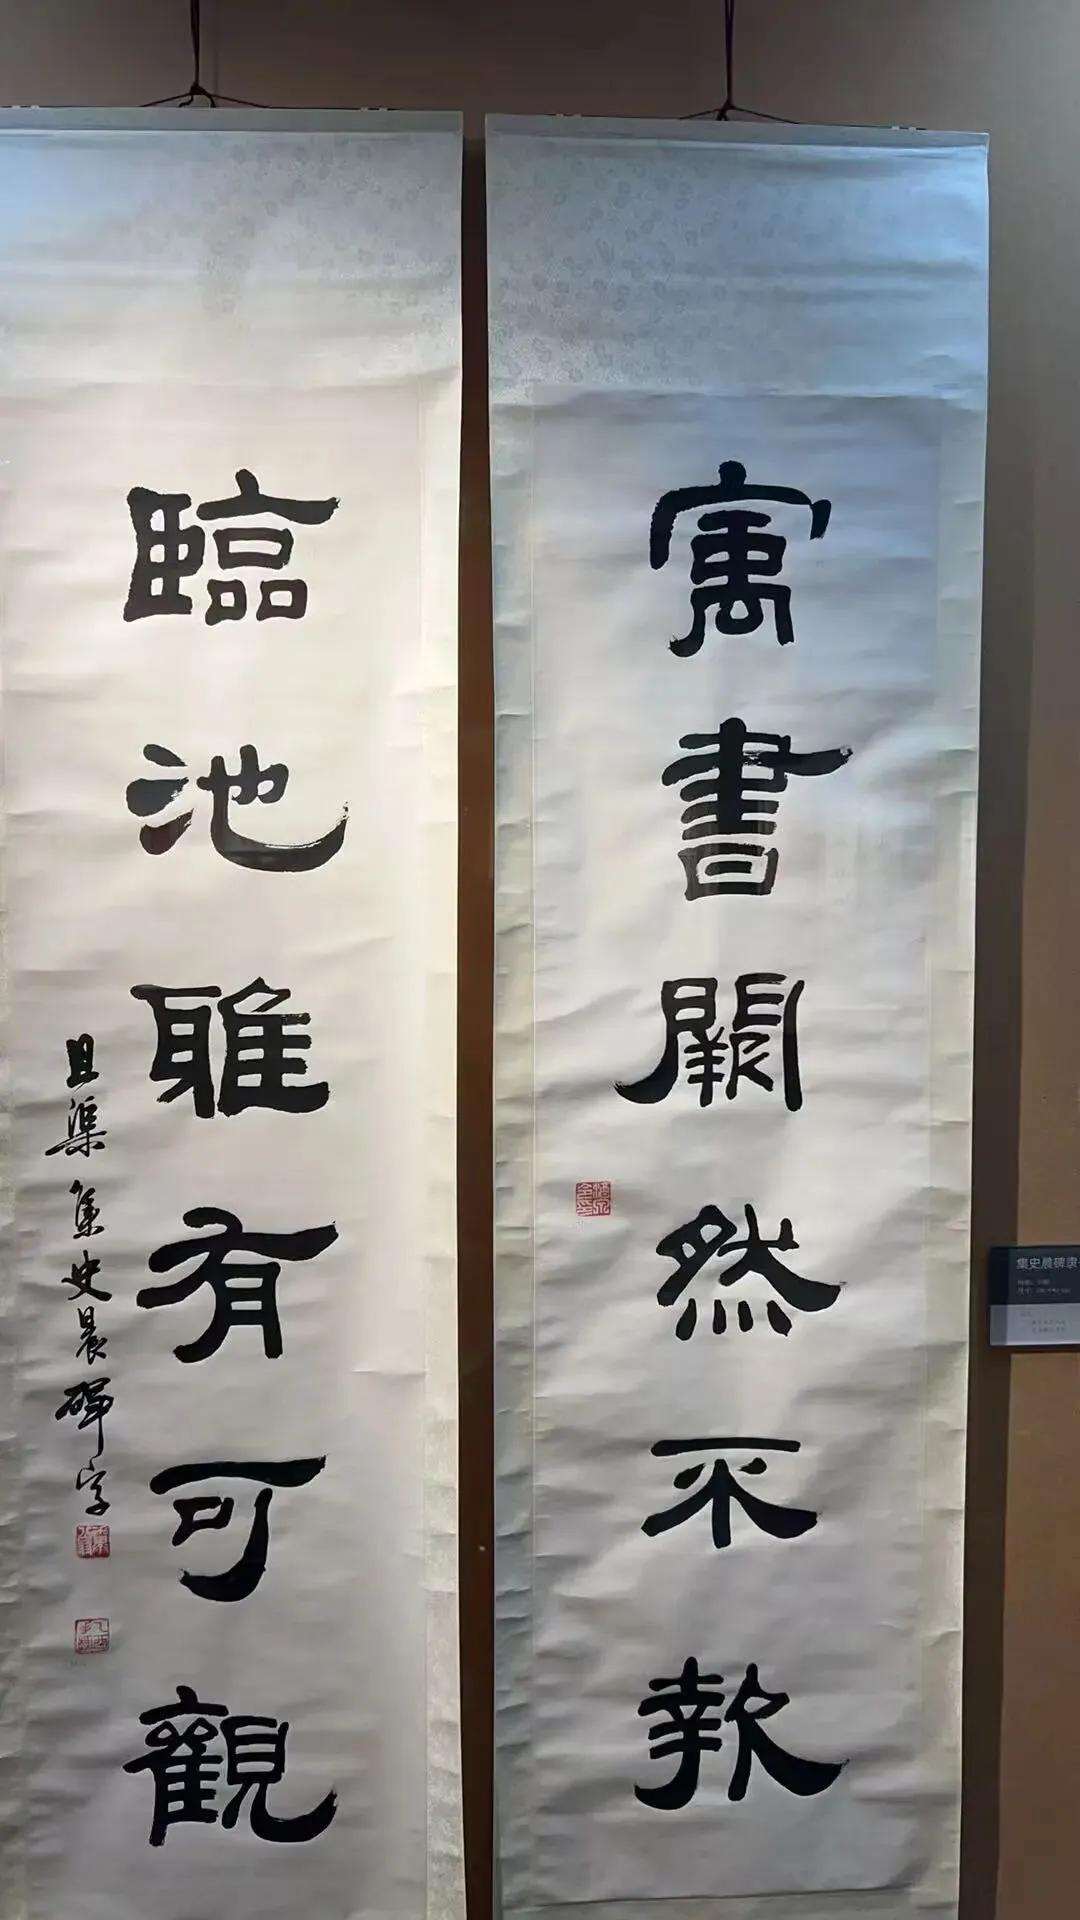 寓書闕然不報
臨池雅有可觀
且渠 集史晨碑字
集史晨碑隶